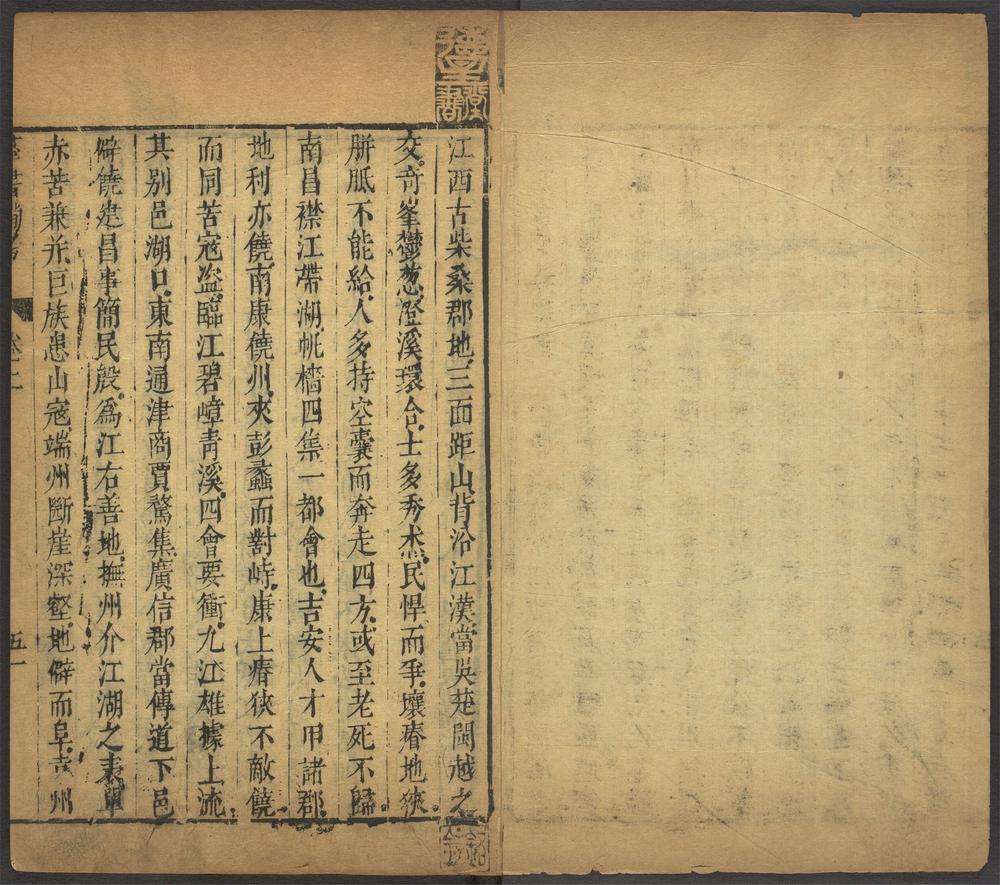 江西古柴桑郡地三面距山背沿江漢當吳楚閩越之
交奇峯鬱葱澄溪環合士多秀杰民悍而爭壤瘠地狹
胼胝不能給人多持空囊而奔走四方或至老死不歸
南昌襟江帶湖帆檣四集一都會也吉安人才甲諸郡
地利亦饒南康饒州夾彭蠡而對峙康上瘠狹不敵饒
而同苦宼盜臨江碧嶂青溪四會要衝九江雄據上流
其别邑湖口東南通津商賈鶩集廣信郡當傳道下邑
僻饒建昌事簡民殷爲江右善地撫州介江湖之表單
赤苦兼并巨族患山宼端州斷崖深壑地僻而阜𡊮州
書
五